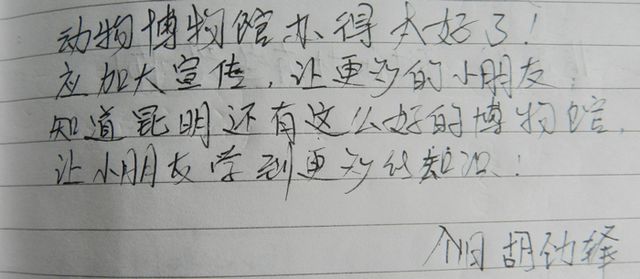 动物博物馆办得太好了！
应加大宣传，让更多的小朋友
知道昆明还有这么好的博物馆，
让小朋友学到更多的知识！
个旧 胡劲择